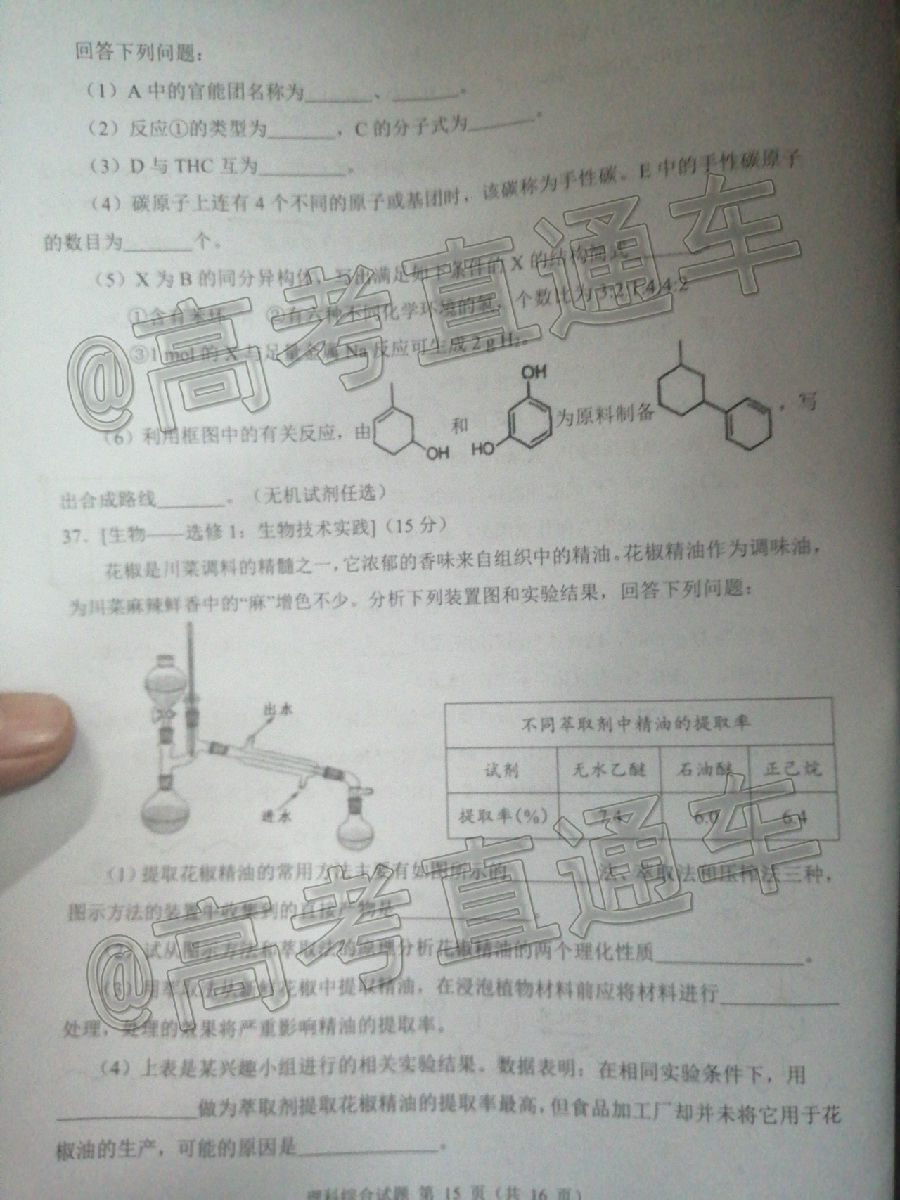 回答下列问题：
（1）A 中的官能团名称为______、______。
（2）反应①的类型为______，C 的分子式为______。
（3）D 与 THC 互为________。
（4）碳原子上连有 4 个不同的原子或基团时，该碳称为手性碳。E 中的手性碳原子
的数目为______个。
（5）X 为 B 的同分异构体，写出满足如下条件的 X 的结构简式______
①含有苯环 ②有六种不同化学环境的氢，个数比为
③1 mol 的 X 与足量金属 Na 反应可生成 2 g H₂。
OH
（6）利用框图中的有关反应，由 OH 和 HO 为原料制备 ，写
出合成路线______。（无机试剂任选）
37．[生物——选修 1：生物技术实践]（15 分）
花椒是川菜调料的精髓之一，它浓郁的香味来自组织中的精油。花椒精油作为调味油，
为川菜麻辣鲜香中的“麻”增色不少。分析下列装置图和实验结果，回答下列问题：
出水
进水
不同萃取剂中精油的提取率
试剂 无水乙醚 石油醚 正己烷
提取率(%) 7.4 6.0 6.4
（1）提取花椒精油的常用方法主要有如图所示的________法、萃取法和压榨法三种，
图示方法的装置中收集到的直接产物是____________。
（2）试从图示方法和萃取法的原理分析花椒精油的两个理化性质____________。
（3）用萃取法从新鲜花椒中提取精油，在浸泡植物材料前应将材料进行__________
处理，处理的效果将严重影响精油的提取率。
（4）上表是某兴趣小组进行的相关实验结果。数据表明：在相同实验条件下，用
____________做为萃取剂提取花椒精油的提取率最高，但食品加工厂却并未将它用于花
椒油的生产，可能的原因是____________。
理科综合试题 第 15 页（共 16 页）
@高考直通车
@高考直通车